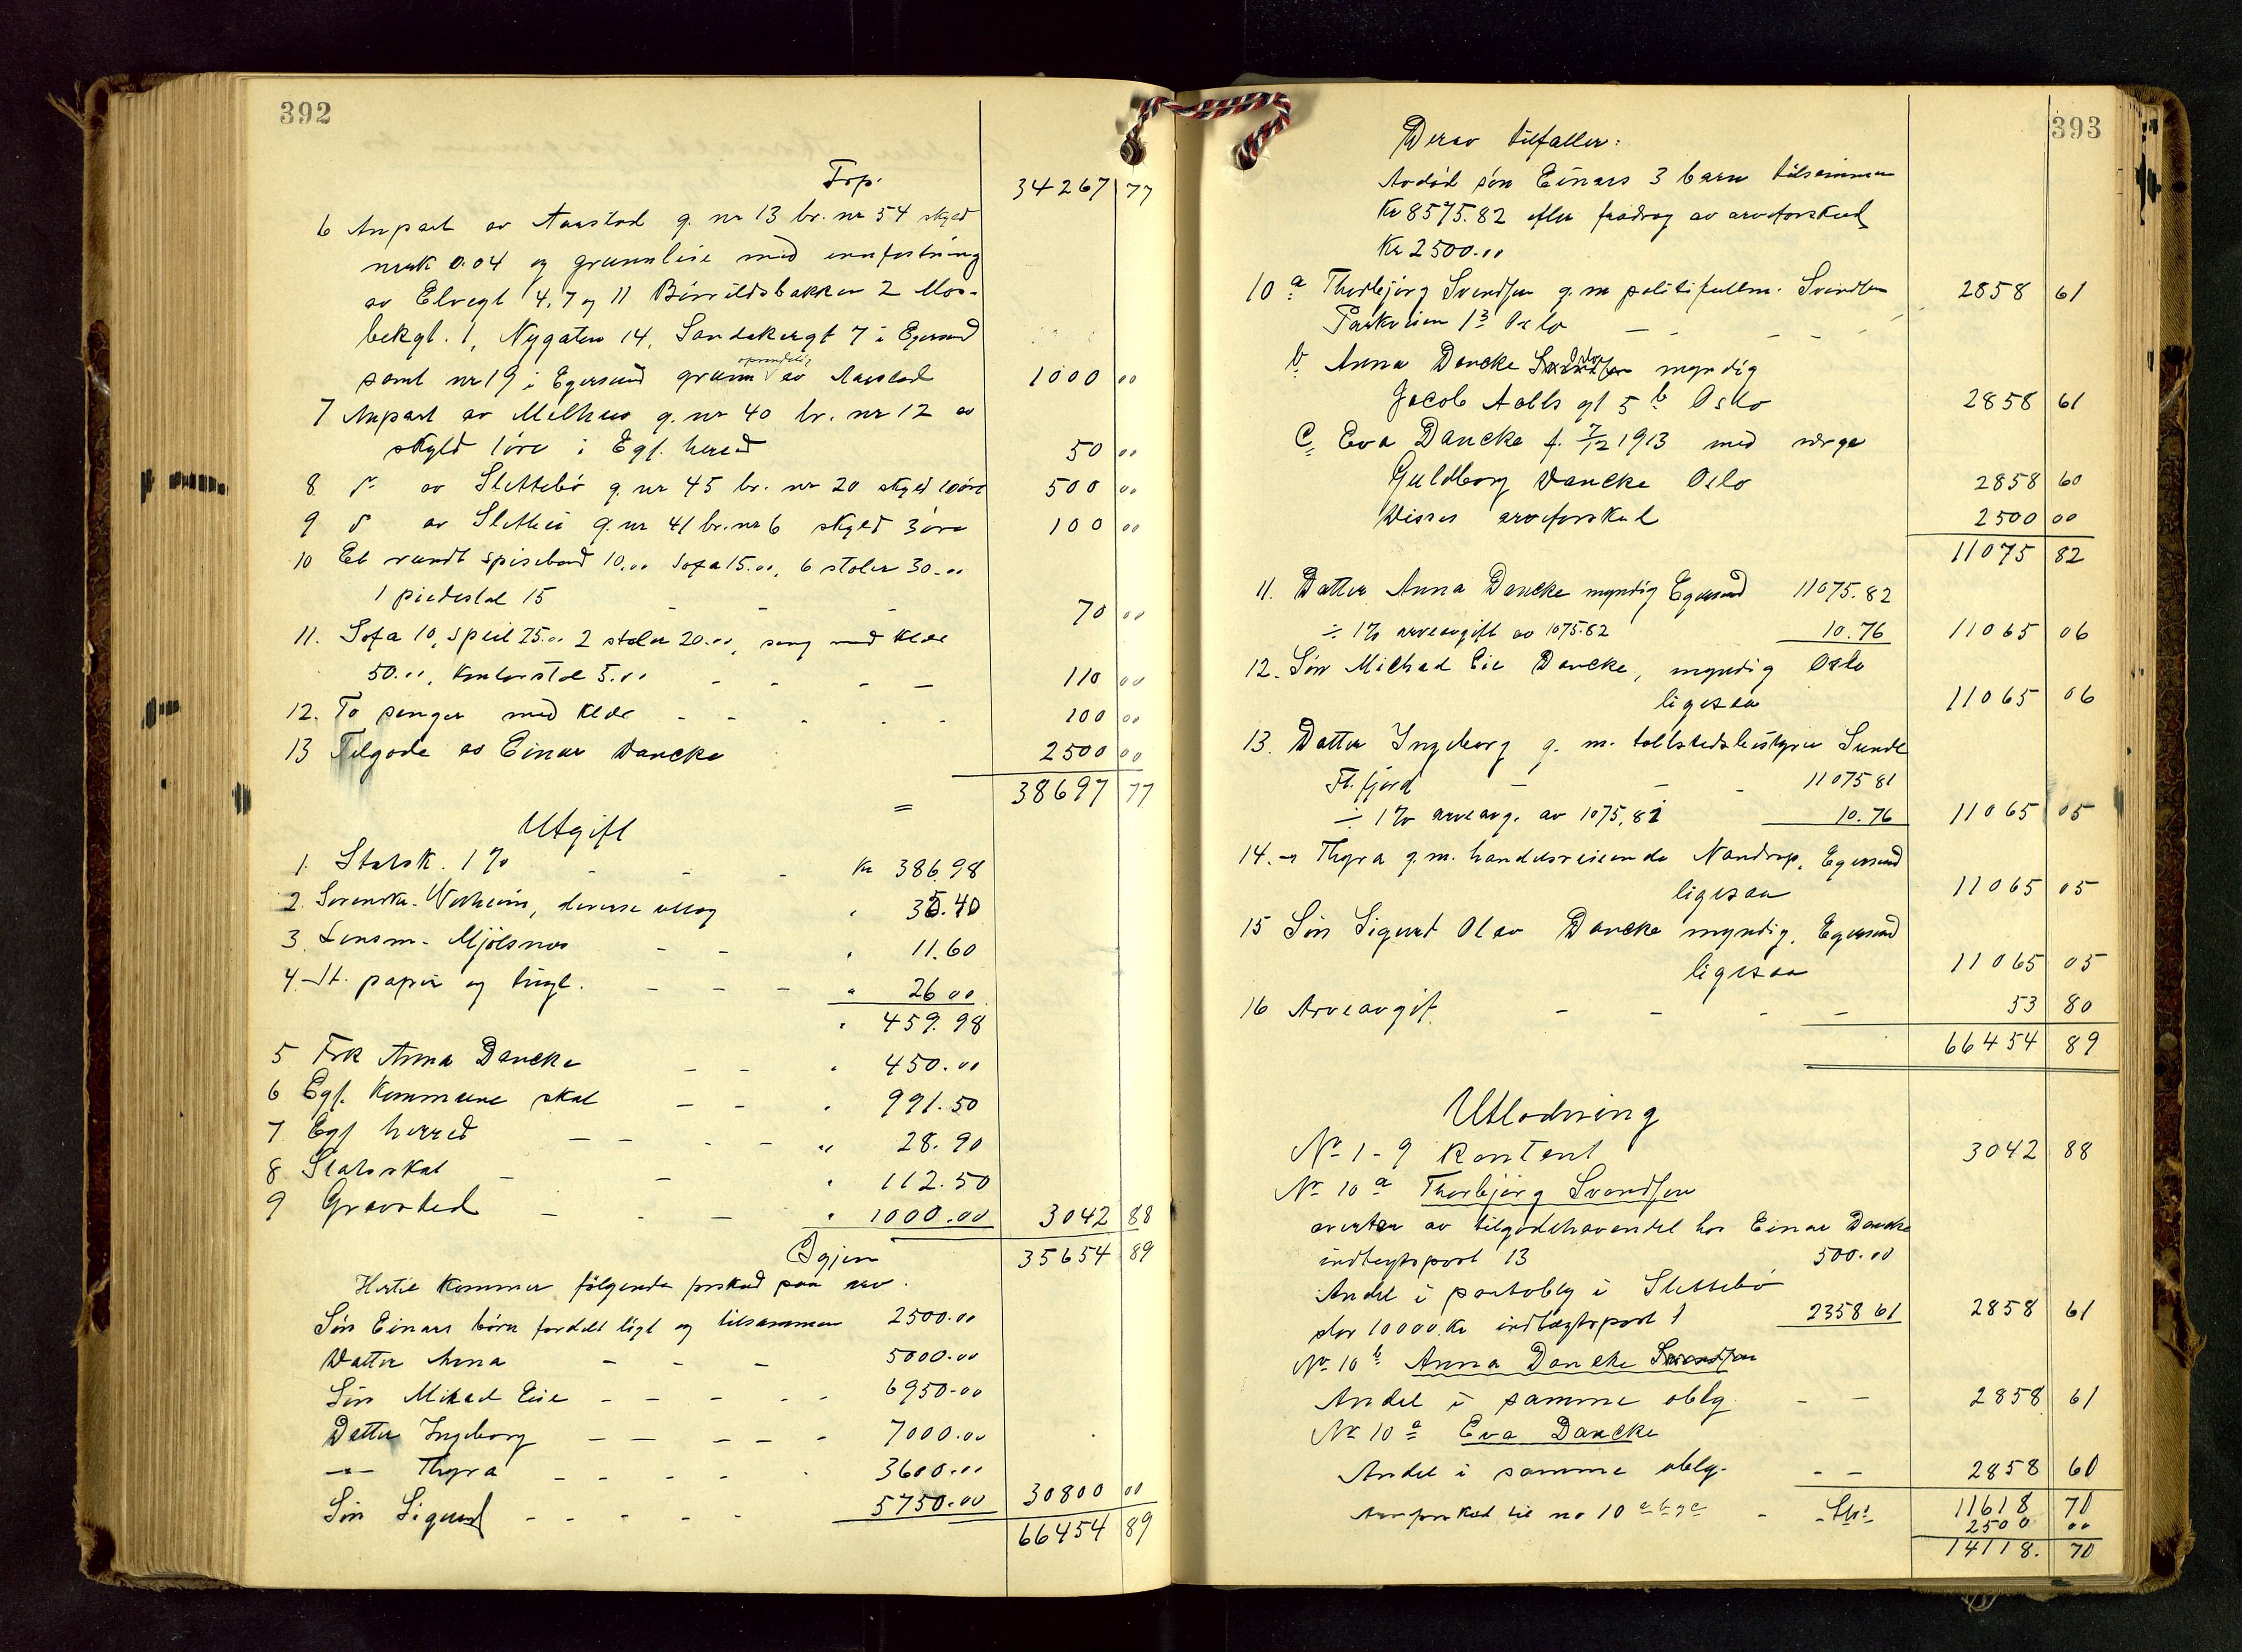 392
Trp. 34267 77
6 Anpart av Aarstad g. nr 13 br. nr 54 skyld
mark 0.04 og grunnleie med innfestning
av Elvegt 4, 7 og 11 Bövrildsbakken 2 Mos-
bekgt. 1, Nygaten 14, Sandakergt 7 i Egersund
samt nr 19 i Egersund grunn oprindelig av Aarstad 1000 00
7 Anpart av Melhus g. nr 40 br. nr 12 av
skyld 1 öre i Egs. herred 50 00
8 do av Slettebö g. nr 45 br. nr 20 skyld 10 öre 500 00
9 do av Slettebö g. nr 41 br. nr 6 skyld 3 öre 100 00
10 Et rundt spisebord 10.00 Sofa 15.00, 6 stoler 30.00
1 piedestal 15 - - - 70 00
11. Sofa 10, speil 25.00 2 stoler 20.00, seng med klær
50.00, Kontorstol 5.00 - - - - 110 00
12. To senger med klær - - - - - 100 00
13 Tilgode av Einar Dancke 2500 00
= 38697 77
Utgift
1. Statsk. 1 % - - - Kr 386.98
2. Sorenskr. Werheim, diverse utlæg " 35.40
3. Lensm. Mjölsnes - - " 11.60
4. St. papir og tingl. - - - " 26 00
" 459.98
5 Frk Anna Dancke - - " 450.00
6 Egs. Kommune skat - - " 991.50
7 Egs herred - - - - " 28.90
8 Statsskat - - " 112.50
9 Gravsted - - - " 1000.00 3042 88
Igjen 35654 89
Hertil kommer fölgende forskud paa arv.
Sön Einars börn fordelt likt og tilsammen 2500.00
Datter Anna - - - 5000.00
Sön Mikael Eie - - - - - 6950.00
Datter Ingeborg - - - - - 7000.00
-"- Thyra - - - - - 3600.00
Sön Sigurd - - - - - 5750.00 30800 00
66454 89
393
Derav tilfaller:
Avdöd sön Einars 3 barn tilsammen
Kr 8575.82 efter fradrag av arveforskud
Kr 2500.00
10 a Thorbjörg Svendsen g. m politifullm. Svendsen 2858 61
Parkveien 13 Oslo - - - -
b Anna Dancke Svendsen myndig
Jacob Aalls gt 5 b Oslo 2858 61
c Eva Dancke f. 7/12 1913 med verge
Guldborg Dancke Oslo 2858 60
Disses arveforskud 2500 00
11075 82
11. Datter Anna Dancke myndig Egersund 11075.82
÷ 1% arveavgift av 1075.82 10.76 11065 06
12. Sön Michael Eie Dancke, myndig Oslo
ligesaa 11065 06
13. Datter Ingeborg g. m. tollstedsbestyrer Sunde
Fl.fjord - - - 11075 81
÷ 1% arveavg. av 1075,81 10.76 11065 05
14. -"- Thyra g. m. handelsreisende Nandrup, Egersund
ligesaa 11065 05
15 Sön Sigurd Olav Dancke myndig, Egersund
ligesaa 11065 05
16 Arveavgift - - - - 53 80
66454 89
Utlodning
No 1 - 9 kontant 3042 88
No 10 a Thorbjörg Svendsen
arverten av tilgodehavendet hos Einar Dancke
indtegtspost 13 500.00
Andel i pantobly i Slettebö
stor 10000 Kr indtægtspost 1 2358 61 2858 61
No 10 b Anna Dancke Svendsen
Andel i samme oblg - - 2858 61
No 10 a Eva Dancke
Andel i samme oblg. - - 2858 60
Arveforskud til no 10 a b g c - 11618 70
2500 00
14118. 70